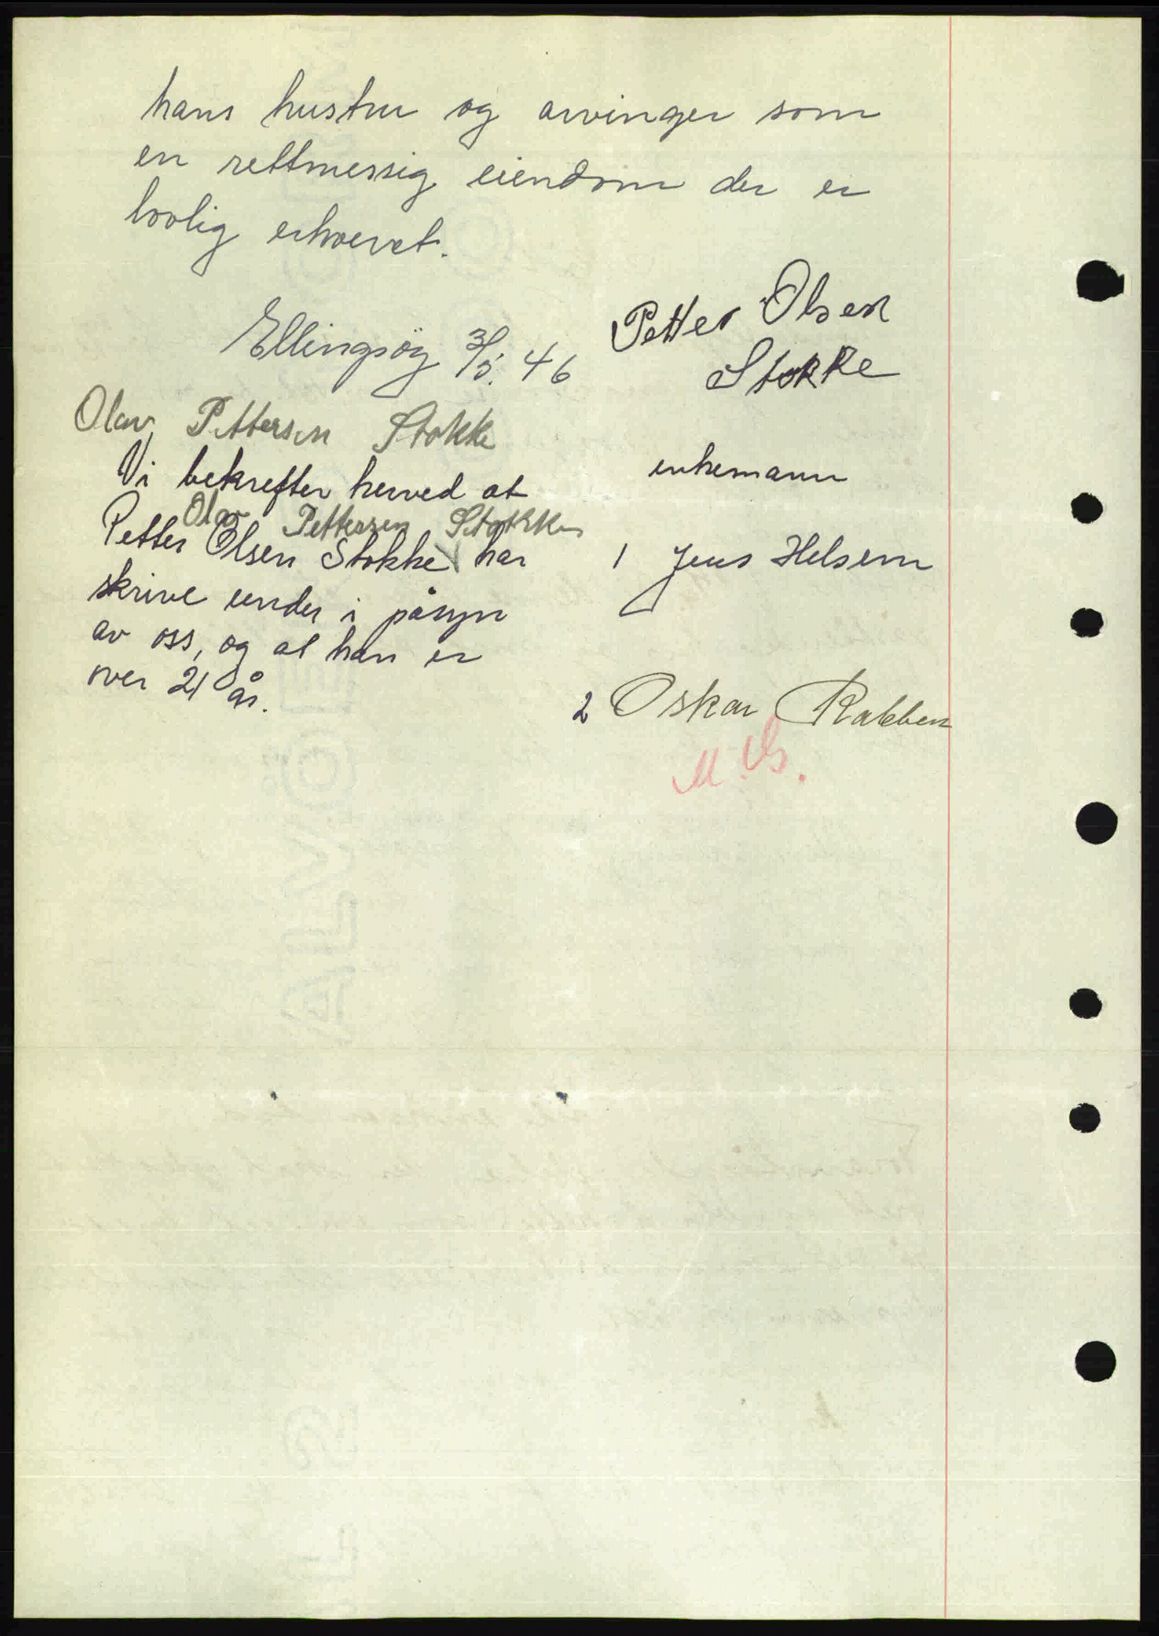 hans hustru og arvinger som
en rettmessig eiendom der er
lovlig erhvervet.
Ellingsøy 3/5. 46
Petter Olsen
Stokke
Olav Pettersen Stokke
enkemann
Vi bekrefter herved at
Olav Pettersen Stokke
Petter Olsen Stokke har
skrive under i påsyn
av oss, og at han er
over 21 år.
1 Jens Helsem
2 Oskar Rabben
ALVØE